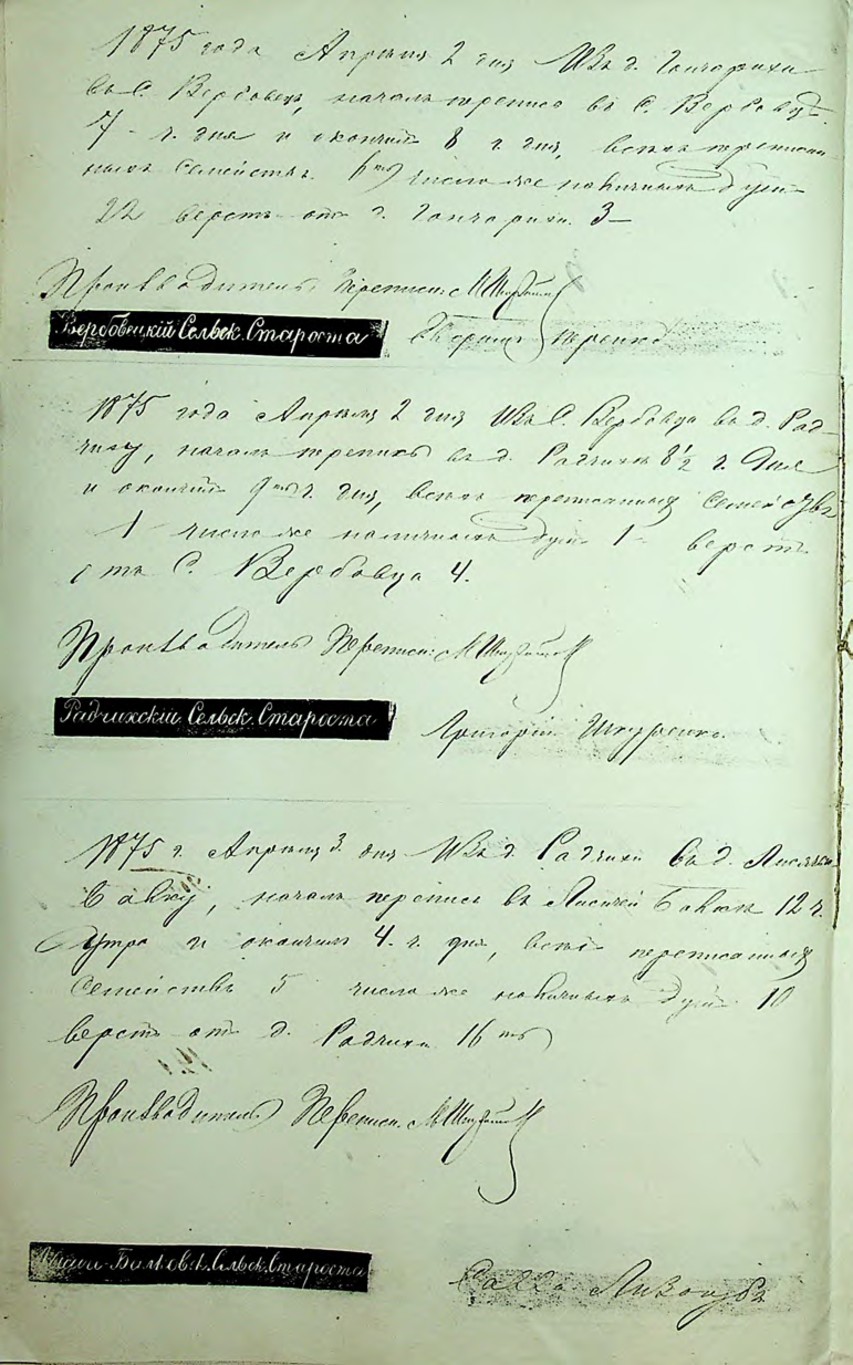 1875 года Апреля 2 дня Изъ д. Гончарихи
въ С. Вербовецъ, началъ перепись въ С. Вербовцѣ
7 - ч. дня и окончилъ 8 ч. дня, всѣхъ переписан
ныхъ Семействъ 6 число же наличныхъ душъ
22 верстъ отъ д. Гончарихи 3 -
Производитель переписи: М
Вербовецкій Сельск. Староста
1875 года Апреля 2 дня Изъ С. Вербовца въ д. Рад-
чиху, началъ перепись въ д. Радчихѣ 8 1/2 ч. дня
и окончилъ 9 ч. дня, всѣхъ переписанныхъ Семействъ
1 число же наличныхъ душъ 1 - верстъ
отъ С. Вербовца 4.
Производитель Переписи: М
Радчихскій Сельск. Староста
Григорій Шкуренко
1875 г. Апреля 3 дня Изъ д. Радчихи въ д. Лисичью
Балку, началъ перепись въ Лисичей Балкѣ 12 ч.
утра и окончилъ 4. ч. дня, всѣхъ переписанныхъ
Семействъ 5 число же наличныхъ душъ 10
верстъ отъ д. Радчихи 16
Производитель Переписи. М
Балковск. Сельск. Староста
Савва